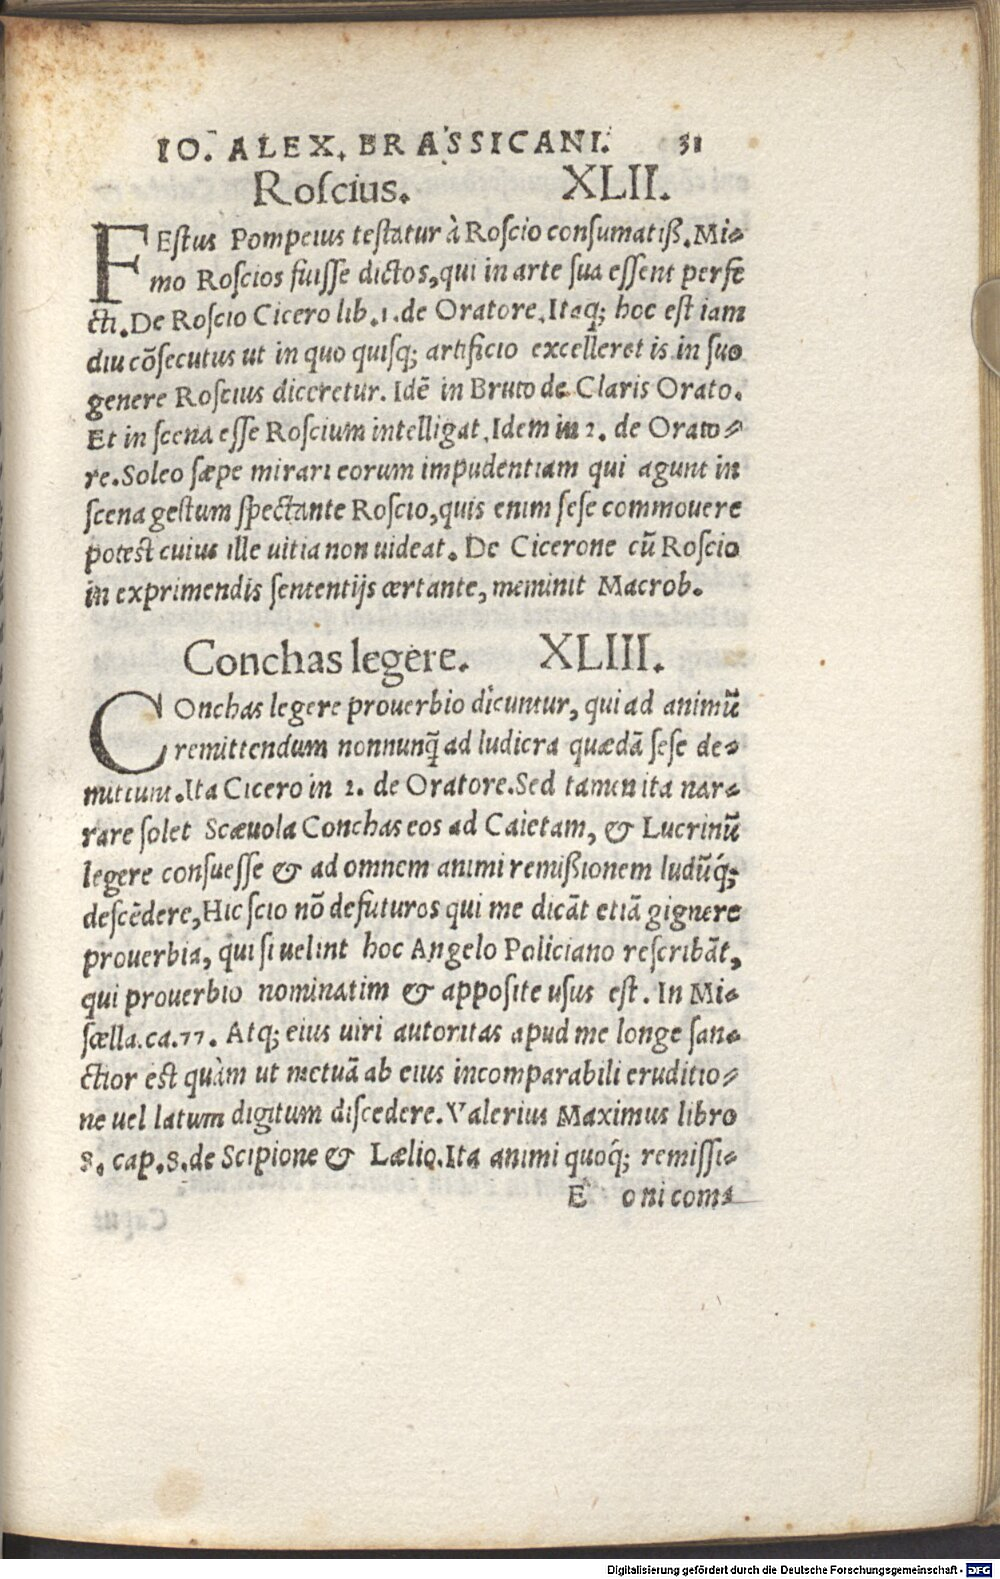 IO. ALEX. BRASSICANI. 31
Roſcius. XLII.
FEſtus Pompeius teſtatur à Roſcio conſumatiß. Mi-
mo Roſcios fuiſſe dictos, qui in arte ſua eſſent perfe
cti. De Roſcio Cicero lib. 1. de Oratore. Itaq; hoc eſt iam
diu cõſecutus ut in quo quiſq; artificio excelleret is in ſuo
genere Roſcius diceretur. Idẽ in Bruto de Claris Orato.
Et in ſcena eſſe Roſcium intelligat. Idem in 2. de Orato-
re. Soleo ſæpe mirari eorum impudentiam qui agunt in
ſcena geſtum ſpectante Roſcio, quis enim ſeſe commouere
poteſt cuius ille uitia non uideat. De Cicerone cũ Roſcio
in exprimendis ſententijs certante, meminit Macrob.
Conchas legere. XLIII.
COnchas legere prouerbio dicuntur, qui ad animũ
remittendum nonnunq̃ ad ludicra quædã ſeſe de-
mittunt. Ita Cicero in 2. de Oratore. Sed tamen ita nar-
rare ſolet Scæuola Conchas eos ad Caietam, & Lucrinũ
legere conſueſſe & ad omnem animi remißionem ludũq́;
deſcẽdere, Hic ſcio nõ defuturos qui me dicãt etiã gignere
prouerbia, qui ſi uelint hoc Angelo Policiano reſcribãt,
qui prouerbio nominatim & appoſite uſus eſt. In Mi-
ſcella. ca. 77. Atq; eius uiri autoritas apud me longe ſan-
ctior eſt quàm ut metuã ab eius incomparabili eruditio-
ne uel latum digitum diſcedere. Valerius Maximus libro
8. cap. 8. de Scipione & Lælio. Ita animi quoq́; remiſſi-
E oni com-
Digitalisierung gefördert durch die Deutsche Forschungsgemeinschaft - DFG